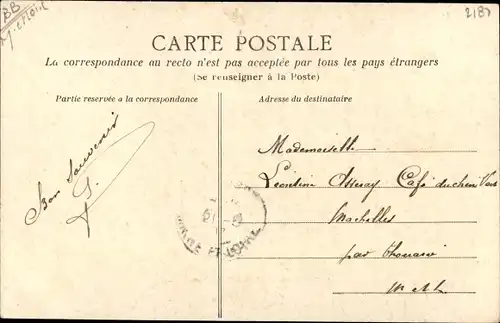 BB
2187
CARTE POSTALE
La correspondance au recto n'est pas acceptée par tous les pays étrangers
(Se renseigner à la Poste)
Partie reservée a la correspondance
Adresse du destinataire
Bon Souvenir
Mademoiselle
Léontine Café du chen Vert
par Thouarcé
M et L
ET LOIRE